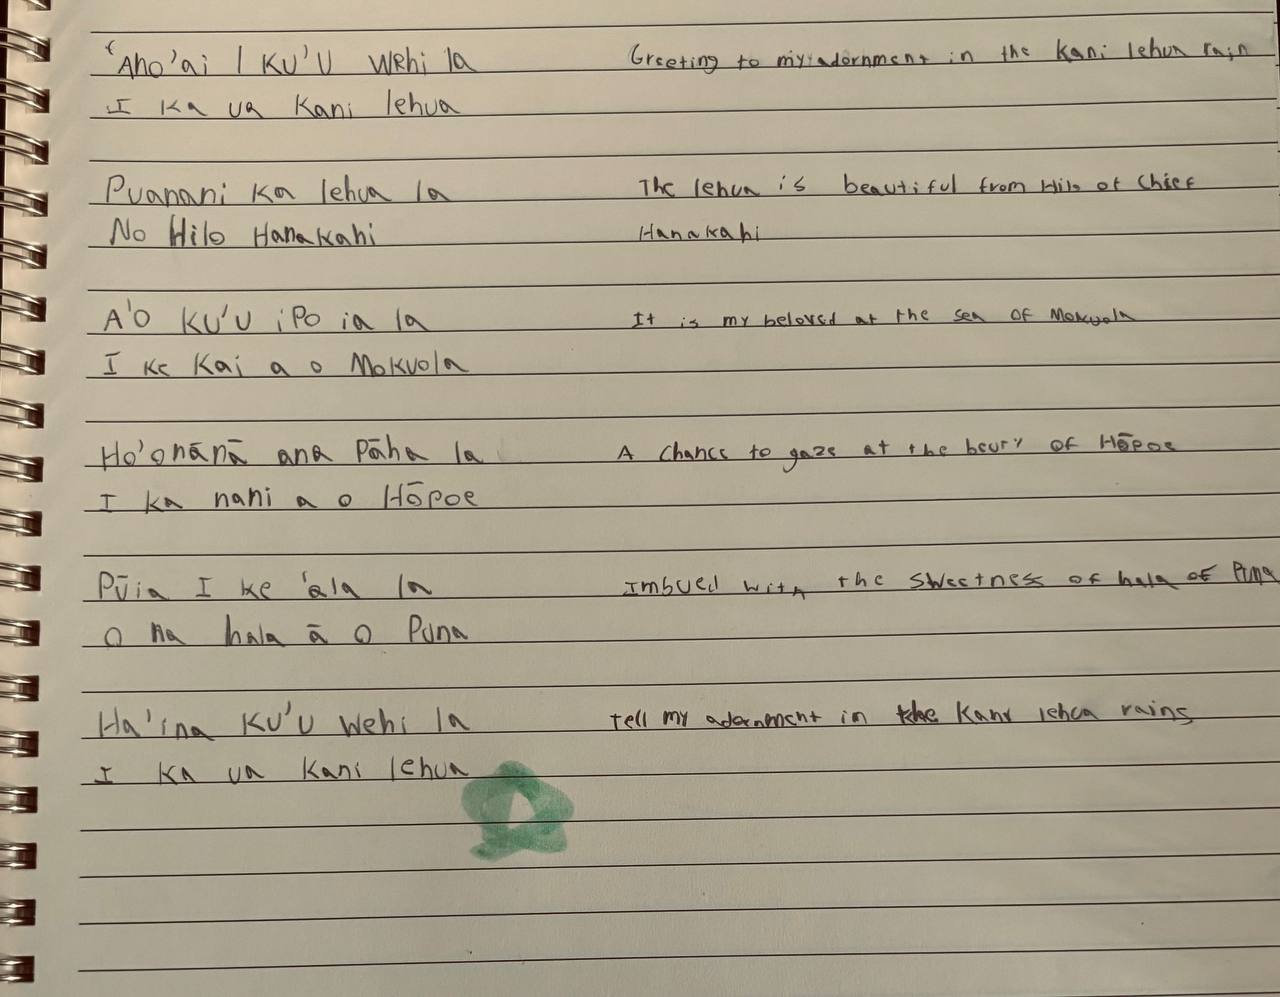 ʻAho'ai I KU'U wehi la
Greeting to my adornment in the Kani lehua rain
I Ka ua Kani lehua
Puanani Ka lehua la
The lehua is beautiful from Hilo of Chief
No Hilo Hanakahi
Hanakahi
A'O KU'U iPO ia la
It is my beloved at the sea OF Mokuola
I Ke Kai a o Mokuola
Ho'onānā ana Pāha la
A Chance to gaze at the beury of Hōpoe
I ka nani a o Hōpoe
Pūia I ke 'ala la
Imbued with the sweetness of hala of Puna
O na hala ā O Puna
Ha'ina KU'U wehi la
Tell my adornment in the Kani lehua rains
I Ka ua Kani lehua